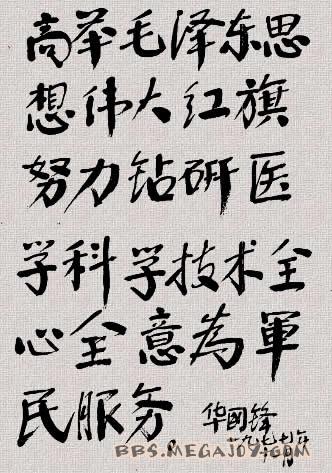 高举毛泽东思
想伟大红旗
努力钻研医
学科学技术全
心全意為軍
民服务
华國锋
一九七七年
BBS.MEGAJOY.COM